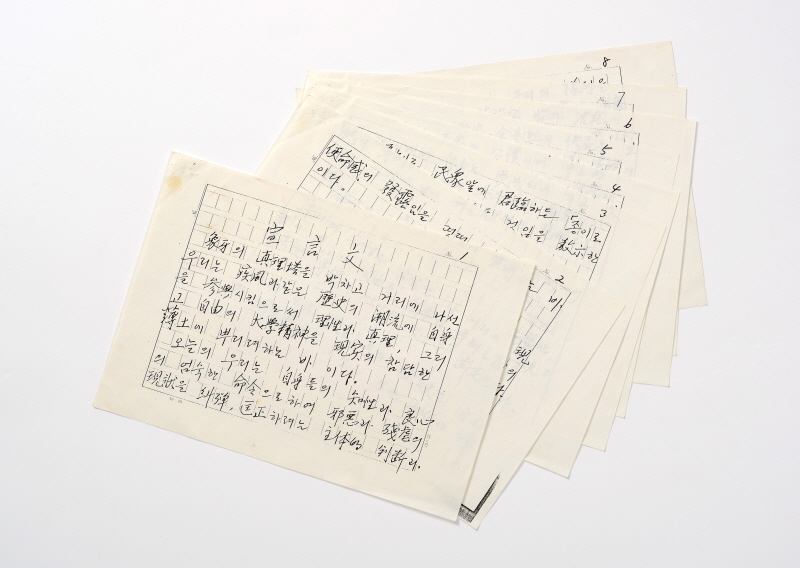 8
7
6
5
4
3
民衆앞에 君臨하는 「종이로
것임을 敎示한
2
使命感의 發露임을 떳떳
는 바
이다.
現
의
1
宣言文
象牙의 眞理塔을 박차고 거리에 나선
우리는 疾風과같은 歷史의 潮流에 自身
을 參與시킴으로써 理性과 眞理, 그리
고 自由의 大學精神을 現實의 참담한
薄土에 뿌리려하는 바이다.
오늘의 우리는 自身들의 知性과 良心
의 엄숙한 命令으로 하여 邪惡과 殘虐의
現狀을 糾彈, 匡正하려는 主體的 判斷과